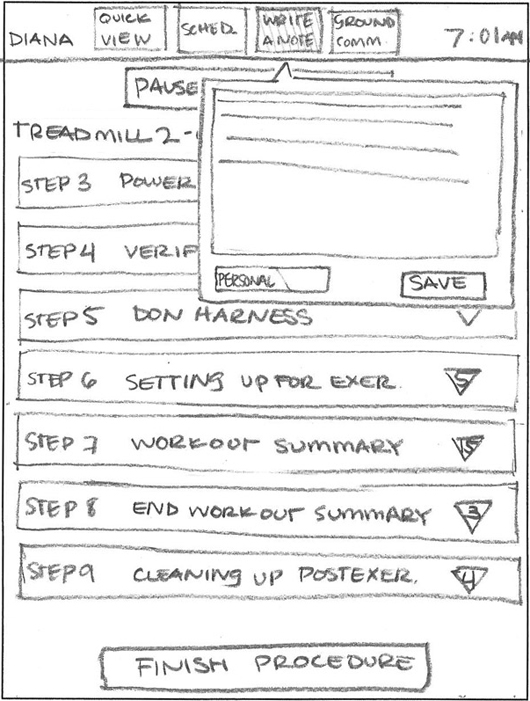 DIANA
QUICK
VIEW
SCHED.
WRITE
A NOTE
GROUND
COMM.
7:01AM
PAUSE
TREADMILL 2-
STEP 3 POWER
STEP 4 VERIF
PERSONAL
SAVE
STEP 5 DON HARNESS
STEP 6 SETTING UP FOR EXER. 5
STEP 7 WORKOUT SUMMARY 15
STEP 8 END WORKOUT SUMMARY 3
STEP 9 CLEANING UP POSTEXER. 4
FINISH PROCEDURE